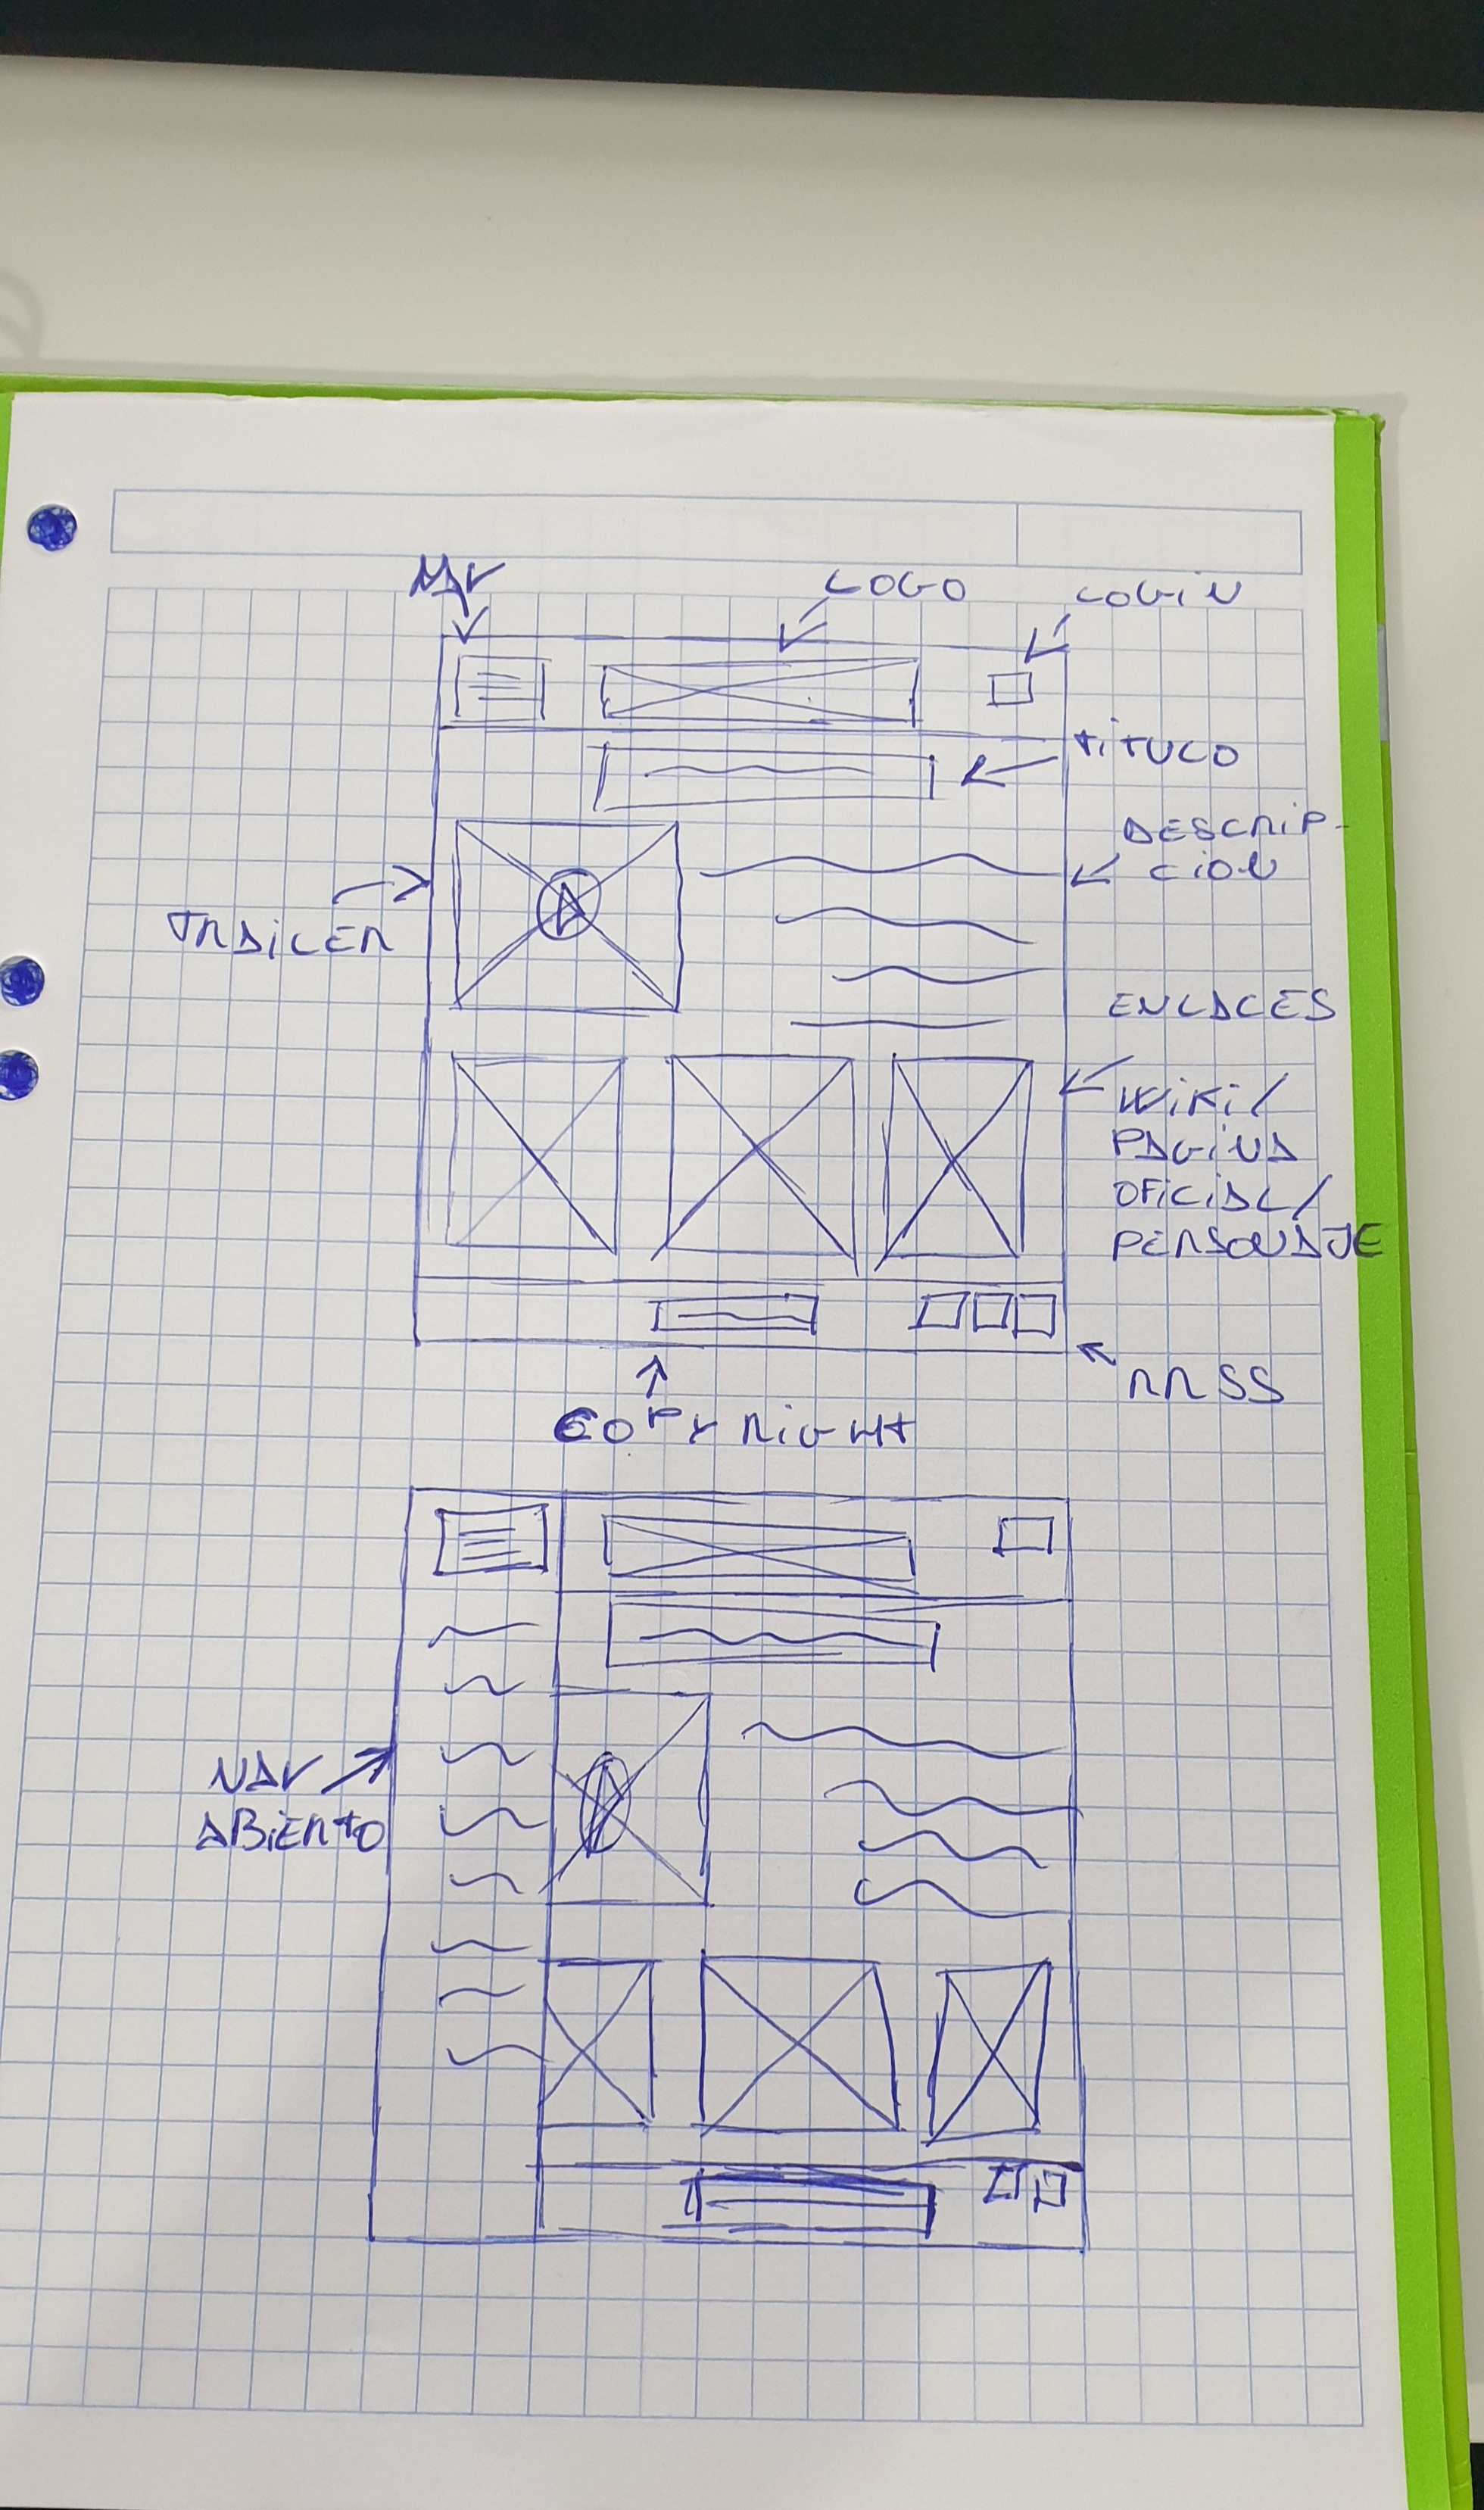 NAV
LOGO
LOGIN
TITULO
DESCRIP-
CION
TRAILER
ENLACES
WIKI/
PAGINA
OFICIAL/
PERSONAJE
RRSS
COPYRIGHT
NAV
ABIERTO